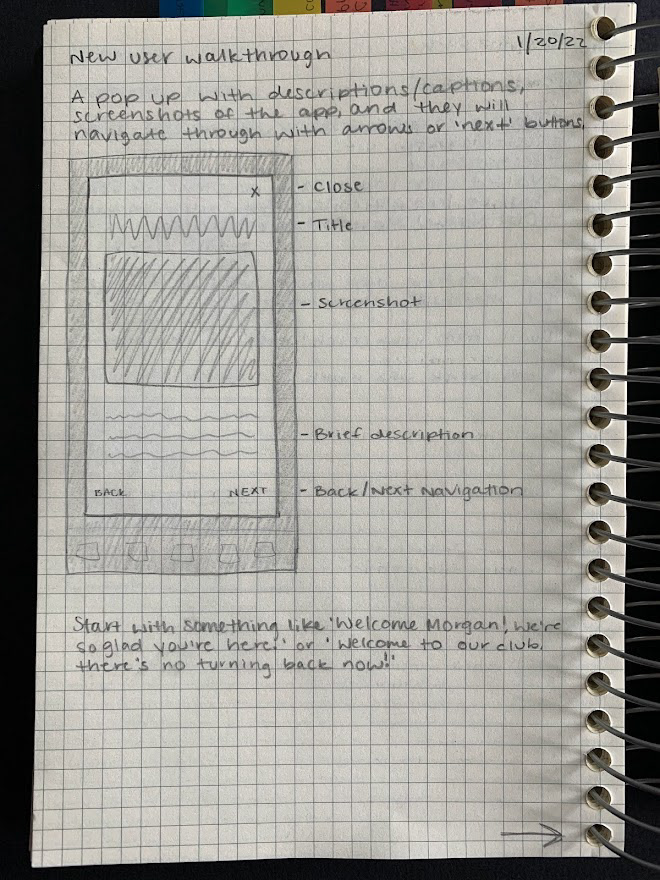 1/20/22
New user walkthrough
A pop up with descriptions/captions,
screenshots of the app, and they will
navigate through with arrows or 'next' buttons.
x
- Close
- Title
- Screenshot
- Brief description
BACK NEXT
- Back/Next Navigation
Start with something like 'Welcome Morgan! We're
so glad you're here!' or 'Welcome to our club,
there's no turning back now!'